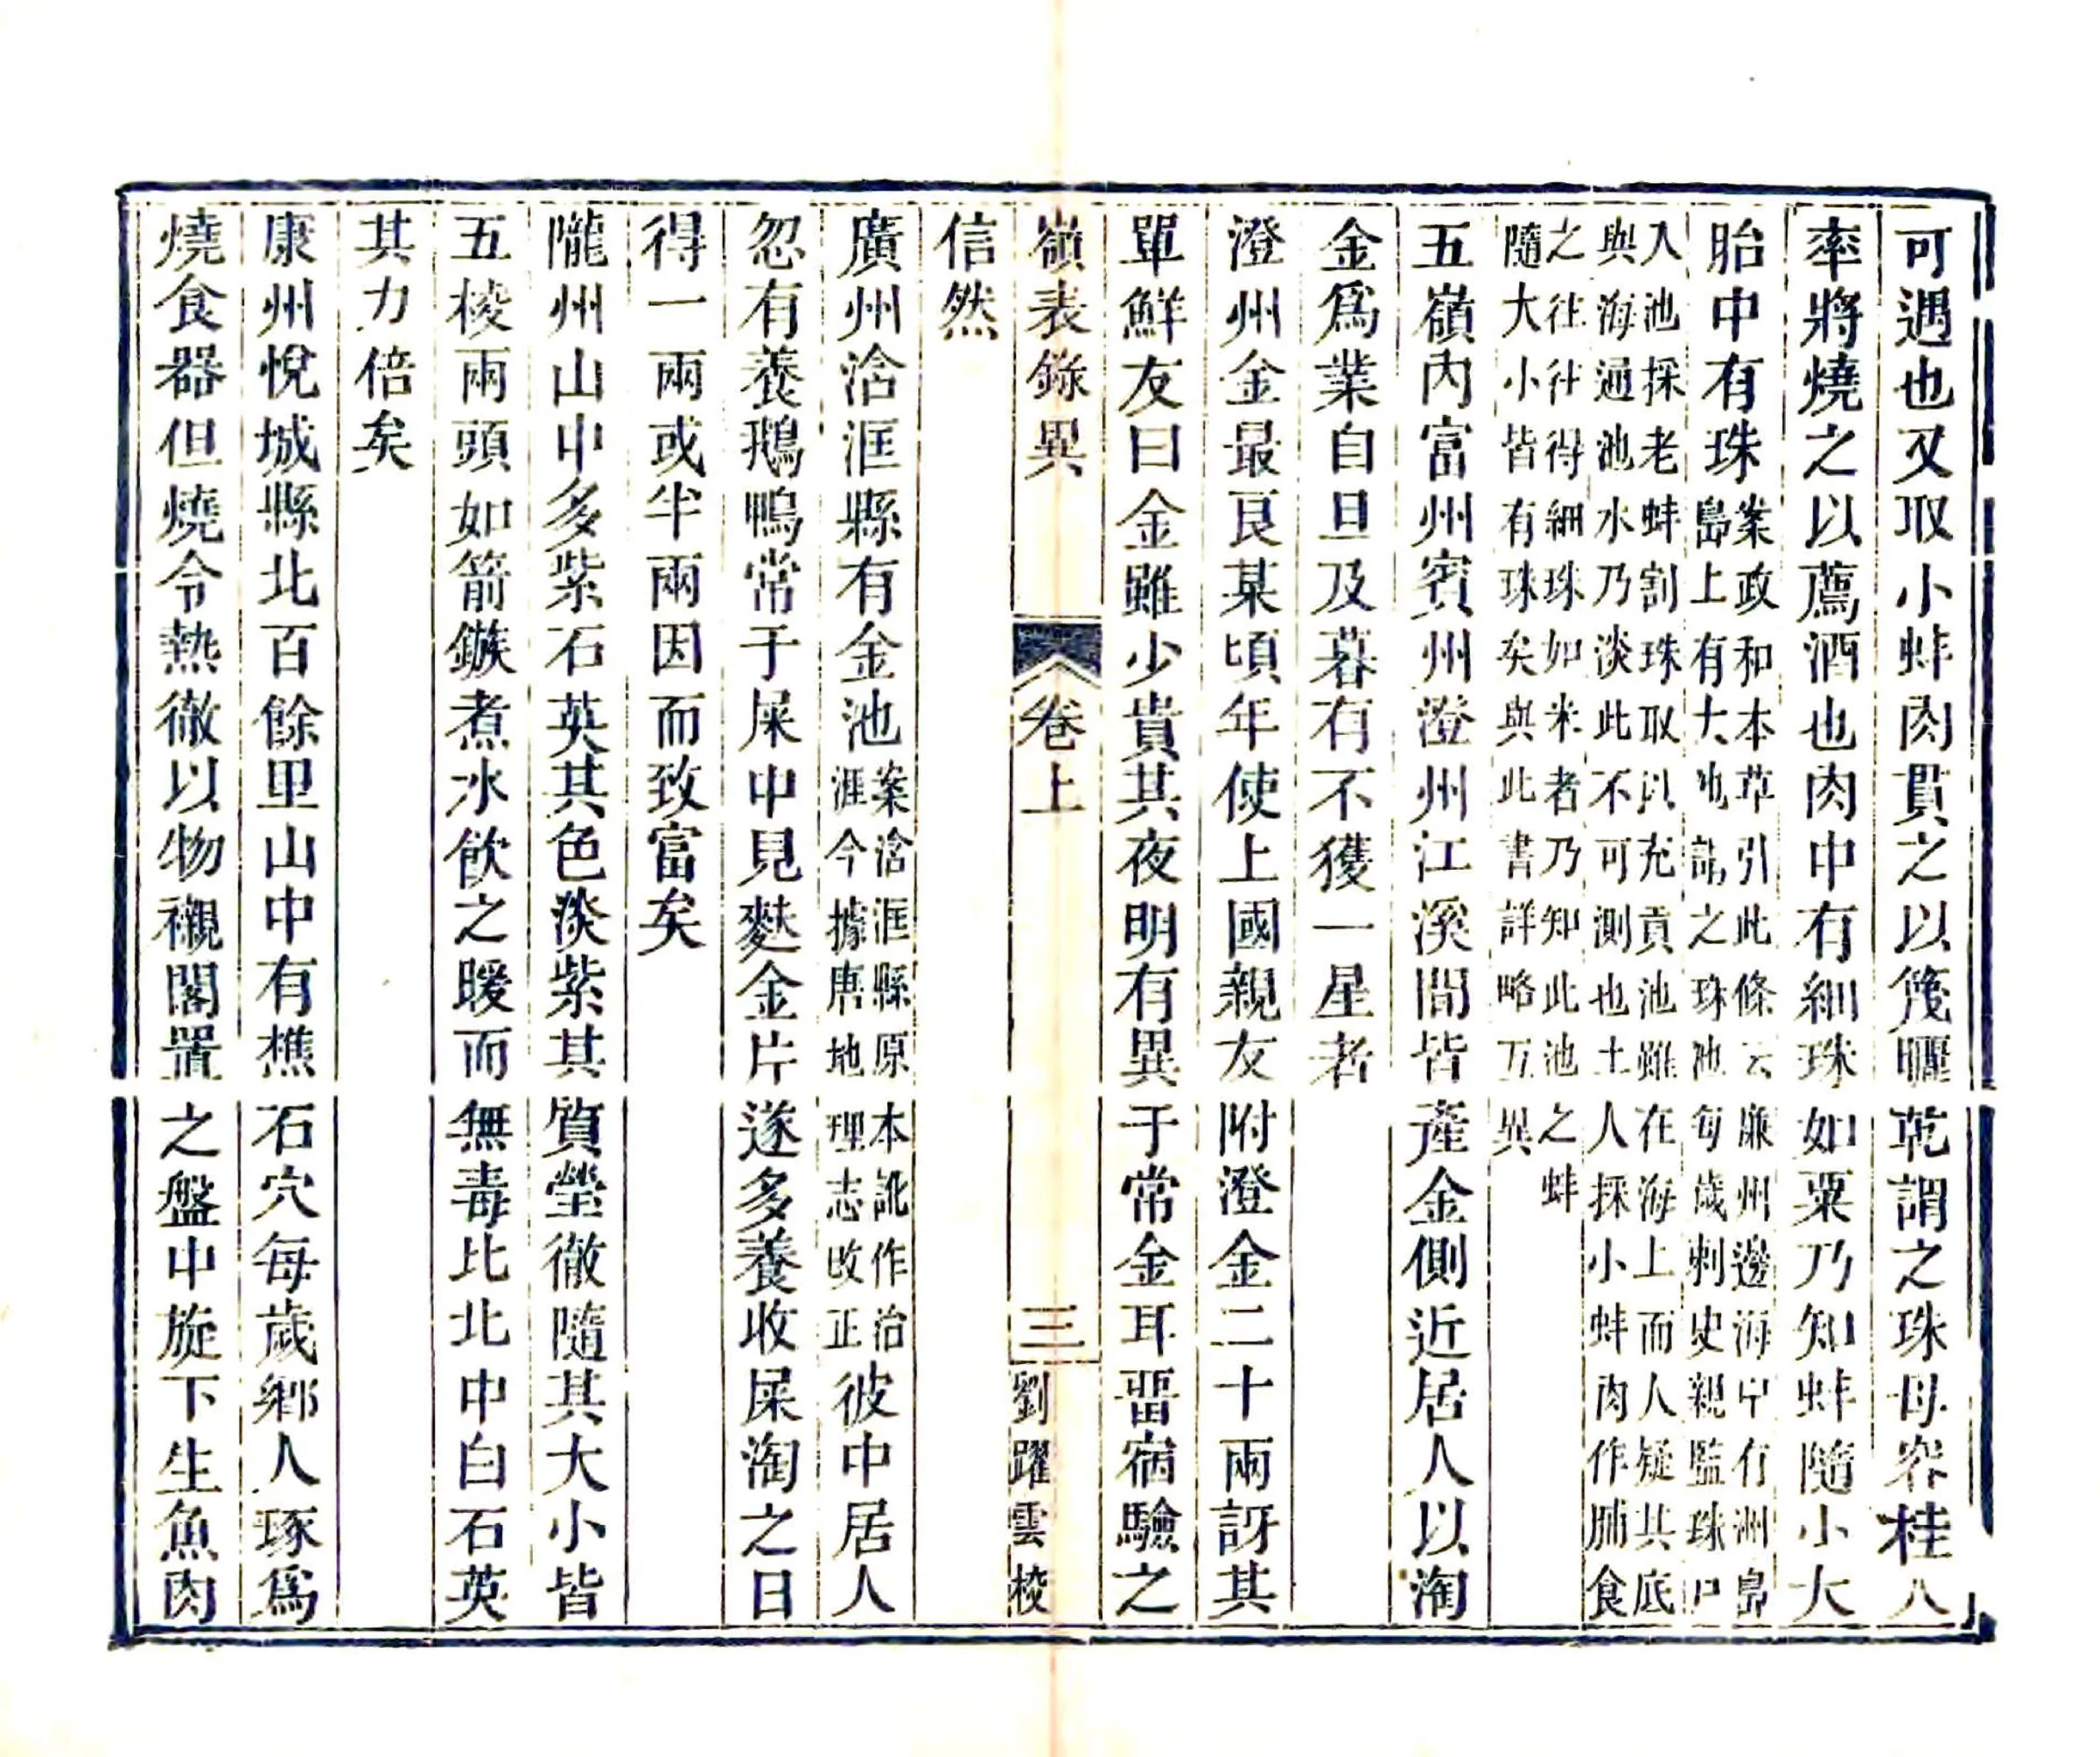 可遇也又取小蚌肉貫之以篾曬乾謂之珠母容桂人
率將燒之以薦酒也肉中有細珠如粟乃知蚌隨小大
胎中有珠案政和本草引此條云廉州邊海中有洲島
島上有大池謂之珠池每歲刺史親監珠戸
入池採老蚌割珠取以充貢池雖在海上而人疑其底
與海通池水乃淡此不可測也土人採小蚌肉作脯食
之往往得細珠如米者乃知此池之蚌
隨大小皆有珠矣與此書詳略互異
五嶺內富州賓州澄州江溪間皆產金側近居人以淘
金爲業自旦及暮有不獲一星者
澄州金最良某頃年使上國親友附澄金二十兩訝其
單鮮友曰金雖少貴其夜明有異于常金耳畱宿驗之
嶺表錄異
卷上
三
劉躍雲校
信然
廣州浛洭縣有金池案浛洭縣原本訛作治
涯今據唐地理志改正彼中居人
忽有養鵝鴨常于屎中見麩金片遂多養收屎淘之日
得一兩或半兩因而致富矣
隴州山中多紫石英其色淡紫其質瑩徹隨其大小皆
五棱兩頭如箭鏃煮水飲之暖而無毒比北中白石英
其力倍矣
康州悅城縣北百餘里山中有樵石穴每歲鄉人琢爲
燒食器但燒令熱徹以物襯閣置之盤中旋下生魚肉